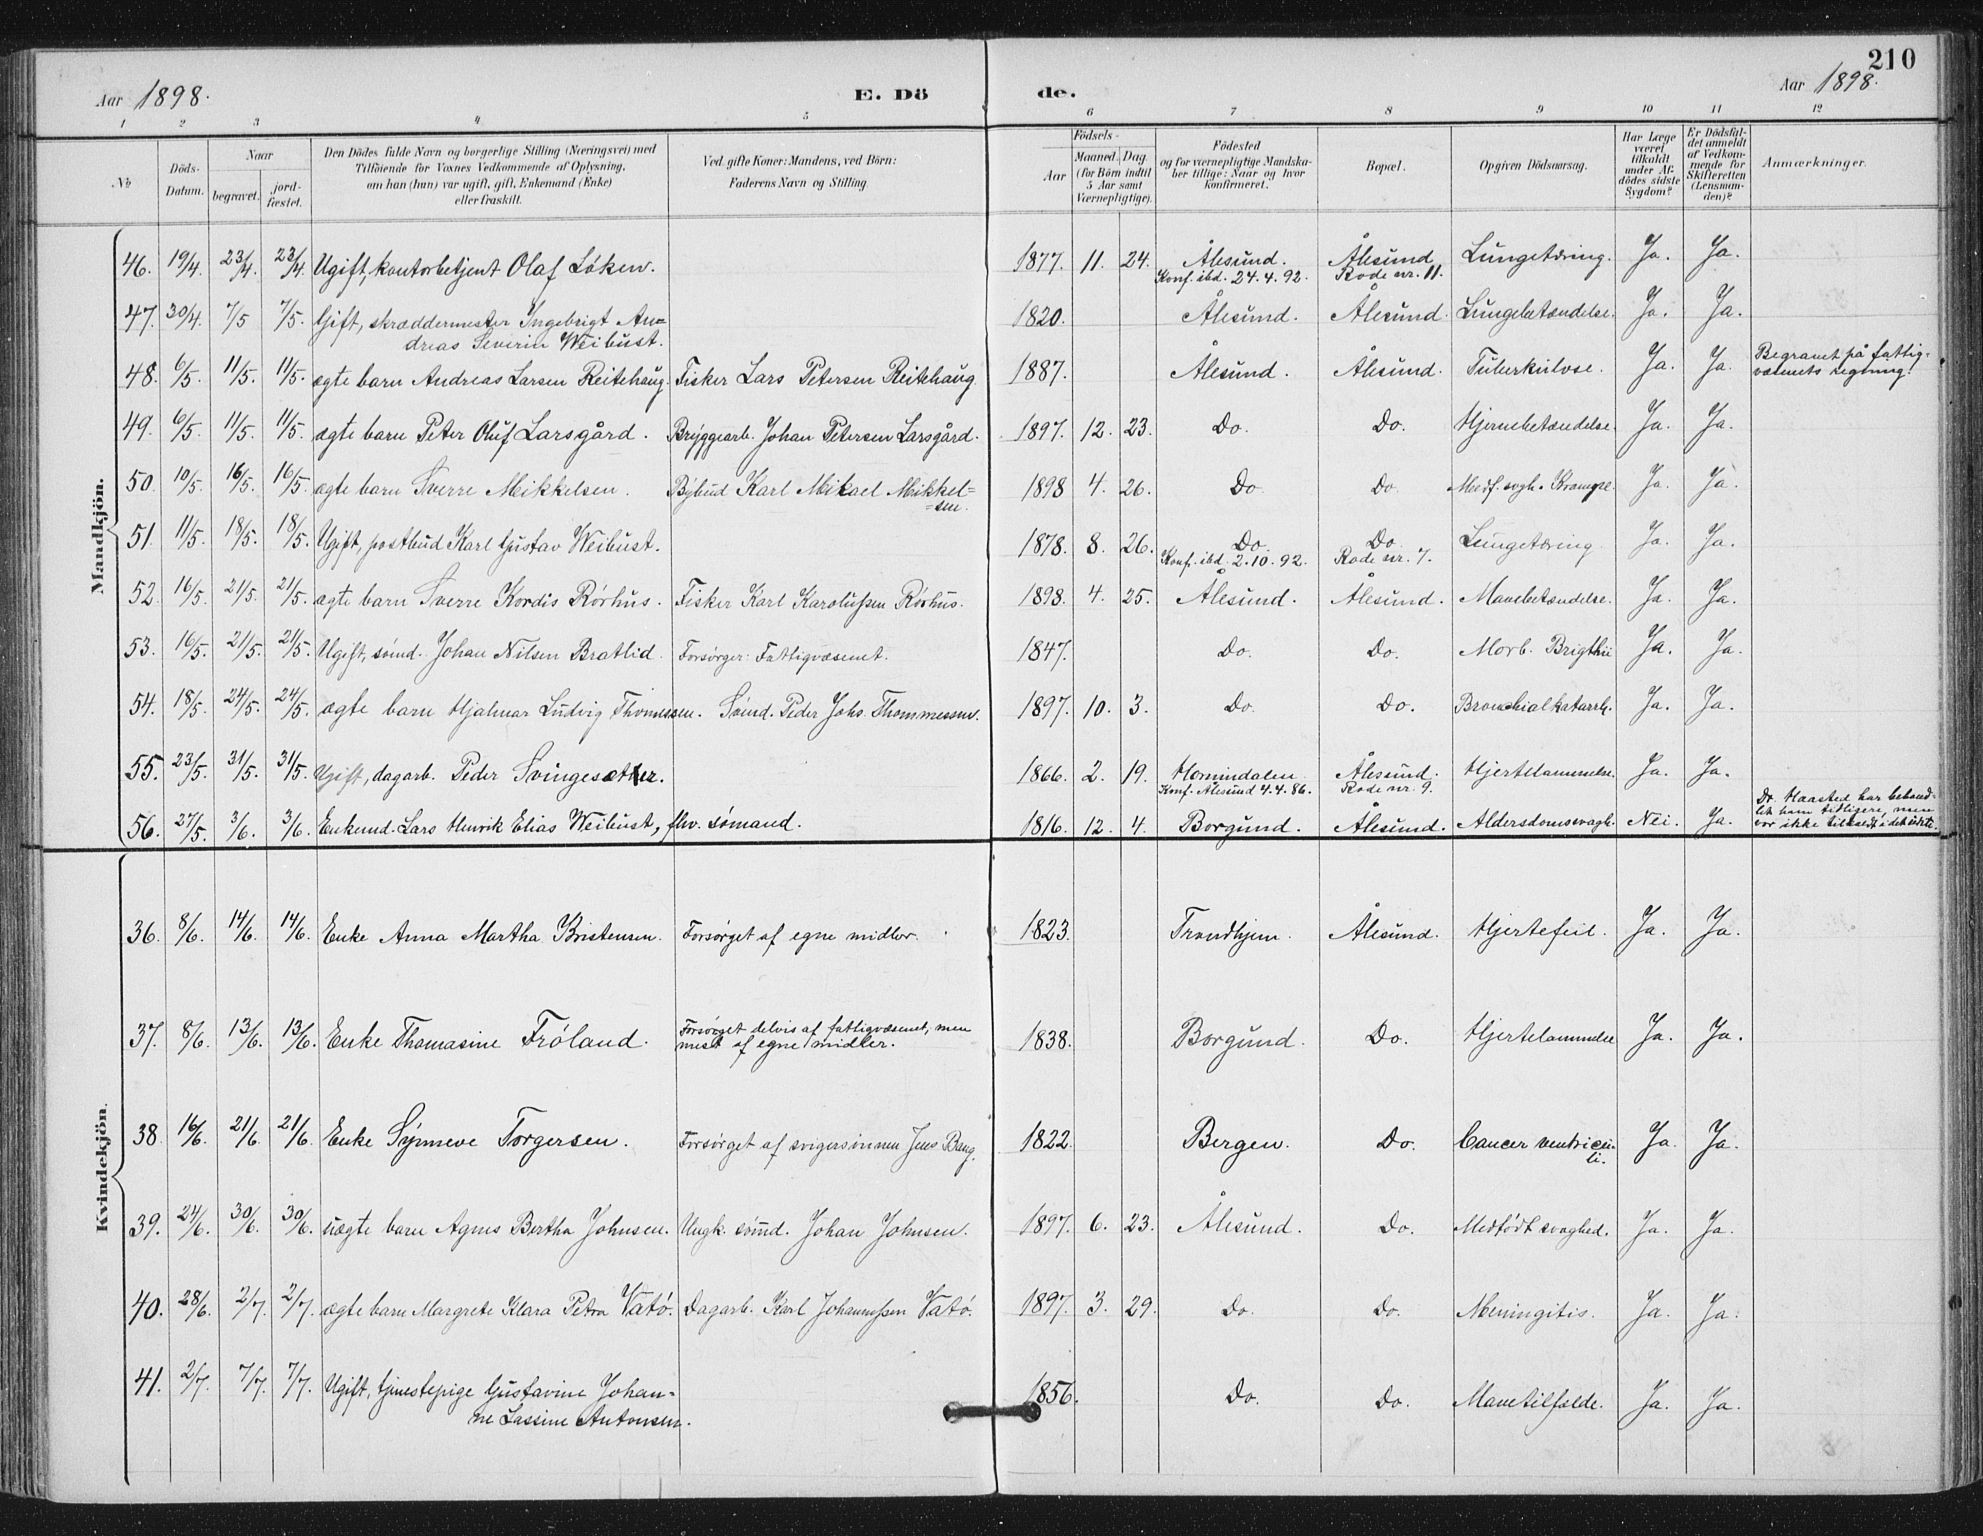 210
Aar 1898.
E. Dö
de.
Aar 1898.
1 2 3 4 5 6 7 8 9 10 11 12
No
Döds-
Datum.
Naar
begravet.
jord-
fæstet.
Den Dödes fulde Navn og borgerlige Stilling (Næringsvei) med
Tilföiende for Voxnes Vedkommende af Oplysning,
om han (hun) var ugift, gift, Enkemand (Enke)
eller fraskilt.
Ved gifte Koner: Mandens, ved Börn:
Faderens Navn og Stilling.
Födsels-
Aar
Maaned. Dag.
(for Börn indtil
5 Aar samt
Værnepligtige).
Födested
og for værnepligtige Mandska-
ber tillige: Naar og hvor
konfirmeret.
Bopæl.
Opgiven Dödsaarsag.
Har Læge
været
tilkaldt
under Af-
dödes sidste
Sygdom?
Er Dödsfal-
det anmeldt
af Vedkom-
mende for
Skifteretten
(Lensman-
den)?
Anmærkninger.
Mandkjön.
46. 19/4. 23/4. 23/4. Ugift, kontorbetjent Olaf Løken. 1877. 11. 24. Ålesund. Ålesund Lungetæring. Ja. Ja.
Konf. ibd. 24.4.92. Rode nr. 11.
47. 30/4. 7/5 7/5. Gift, skræddermester Ingebrigt An= 1820. Ålesund. Ålesund. Lungebetændelse. Ja. Ja.
dreas Severin Weibust.
48. 6/5. 11/5. 11/5. ægte barn Andreas Larsen Reitehaug. Fisker Lars Petersen Reitehaug 1887. Ålesund. Ålesund. Tuberkulose. Ja. Ja. Begravet på fattig-
væsenets regning.
49. 6/5. 11/5. 11/5. ægte barn Peter Oluf Larsgård. Bryggearb. Johan Petersen Larsgård. 1897. 12. 23. Do. Do. Hjernebetændelse. Ja. Ja.
50. 10/5. 16/5. 16/5. ægte barn Sverre Mikkelsen. Bybud Karl Mikael Mikkel= 1898 4. 26. Do Do. Medf. svagh. Krampe. Ja. Ja.
=sen.
51. 11/5. 18/5. 18/5. Ugift, postbud Karl Gustav Weibust. 1878. 8. 26. Do. Do Lungetæring Ja. Ja.
Konf. ibd. 2.10.92. Rode nr. 7.
52. 16/5. 21/5. 21/5. ægte barn Sverre Kordis Rörhus. Fisker Karl Karolussen Rörhus. 1898. 4. 25. Ålesund. Ålesund. Mavebetændelse. Ja. Ja.
53. 16/5. 21/5. 21/5. Ugift, sömd. Johan Nilsen Bratlid. Forsørger: Fattigvæsenet. 1847. Do. Do. Morb. Brigthii Ja. Ja.
54. 18/5. 24/5. 24/5. ægte barn Hjalmar Ludvig Thomessen. Sömd. Peder Johs. Thommessen. 1897. 10. 3. Do. Do. Bronchialkatarrh. Ja. Ja.
55. 23/5. 31/5. 31/5. Ugift, dagarb. Peder Svingesætter. 1866. 2. 19. Hornindalen Ålesund. Hjertelammelse. Ja. Ja.
Konf. Ålesund 4.4.86. Rode nr. 9.
56. 27/5. 3/6. 3/6. Enkemd. Lars Henrik Elias Weibust, fhv. sømand. 1816. 12. 4. Borgund. Ålesund. Aldersdomssvagh. Nei. Ja. Dr. Haasted har behand-
let ham tidligere, men
var ikke tilkaldt i det sidste.
Kvindekjön.
36. 8/6. 14/6. 14/6. Enke Anna Martha Kristensen. Forsørget af egne midler. 1823. Trondhjem. Ålesund. Hjertefeil. Ja. Ja.
37. 8/6. 13/6. 13/6. Enke Thomasine Fröland. Forsørget delvis af fattigvæsenet, men 1838. Borgund. Do. Hjertelammelse Ja. Ja.
mest af egne midler.
38. 16/6. 21/6. 21/6. Enke Synneve Torgersen. Forsørget af svigersønnen Jens Bang. 1822. Bergen. Do. Cancer ventricu-
li. Ja. Ja.
39. 24/6. 30/6. 30/6. uægte barn Agnes Bertha Johnsen. Ungk. sömd. Johan Johnsen. 1897. 6. 23. Ålesund. Do. Medfödt svaghed. Ja. Ja.
40. 28/6. 2/7. 2/7. ægte barn Margrete Klara Petra Vatö. Dagarb. Karl Johannessen Vatö. 1897. 3. 29. Do. Do. Meningitis. Ja. Ja.
41. 2/7. 7/7. 7/7. Ugift, tjenestepige Gustavine Johan= 1856. Do. Do. Mavetilfælde. Ja. Ja.
ne Lassine Antonsen.